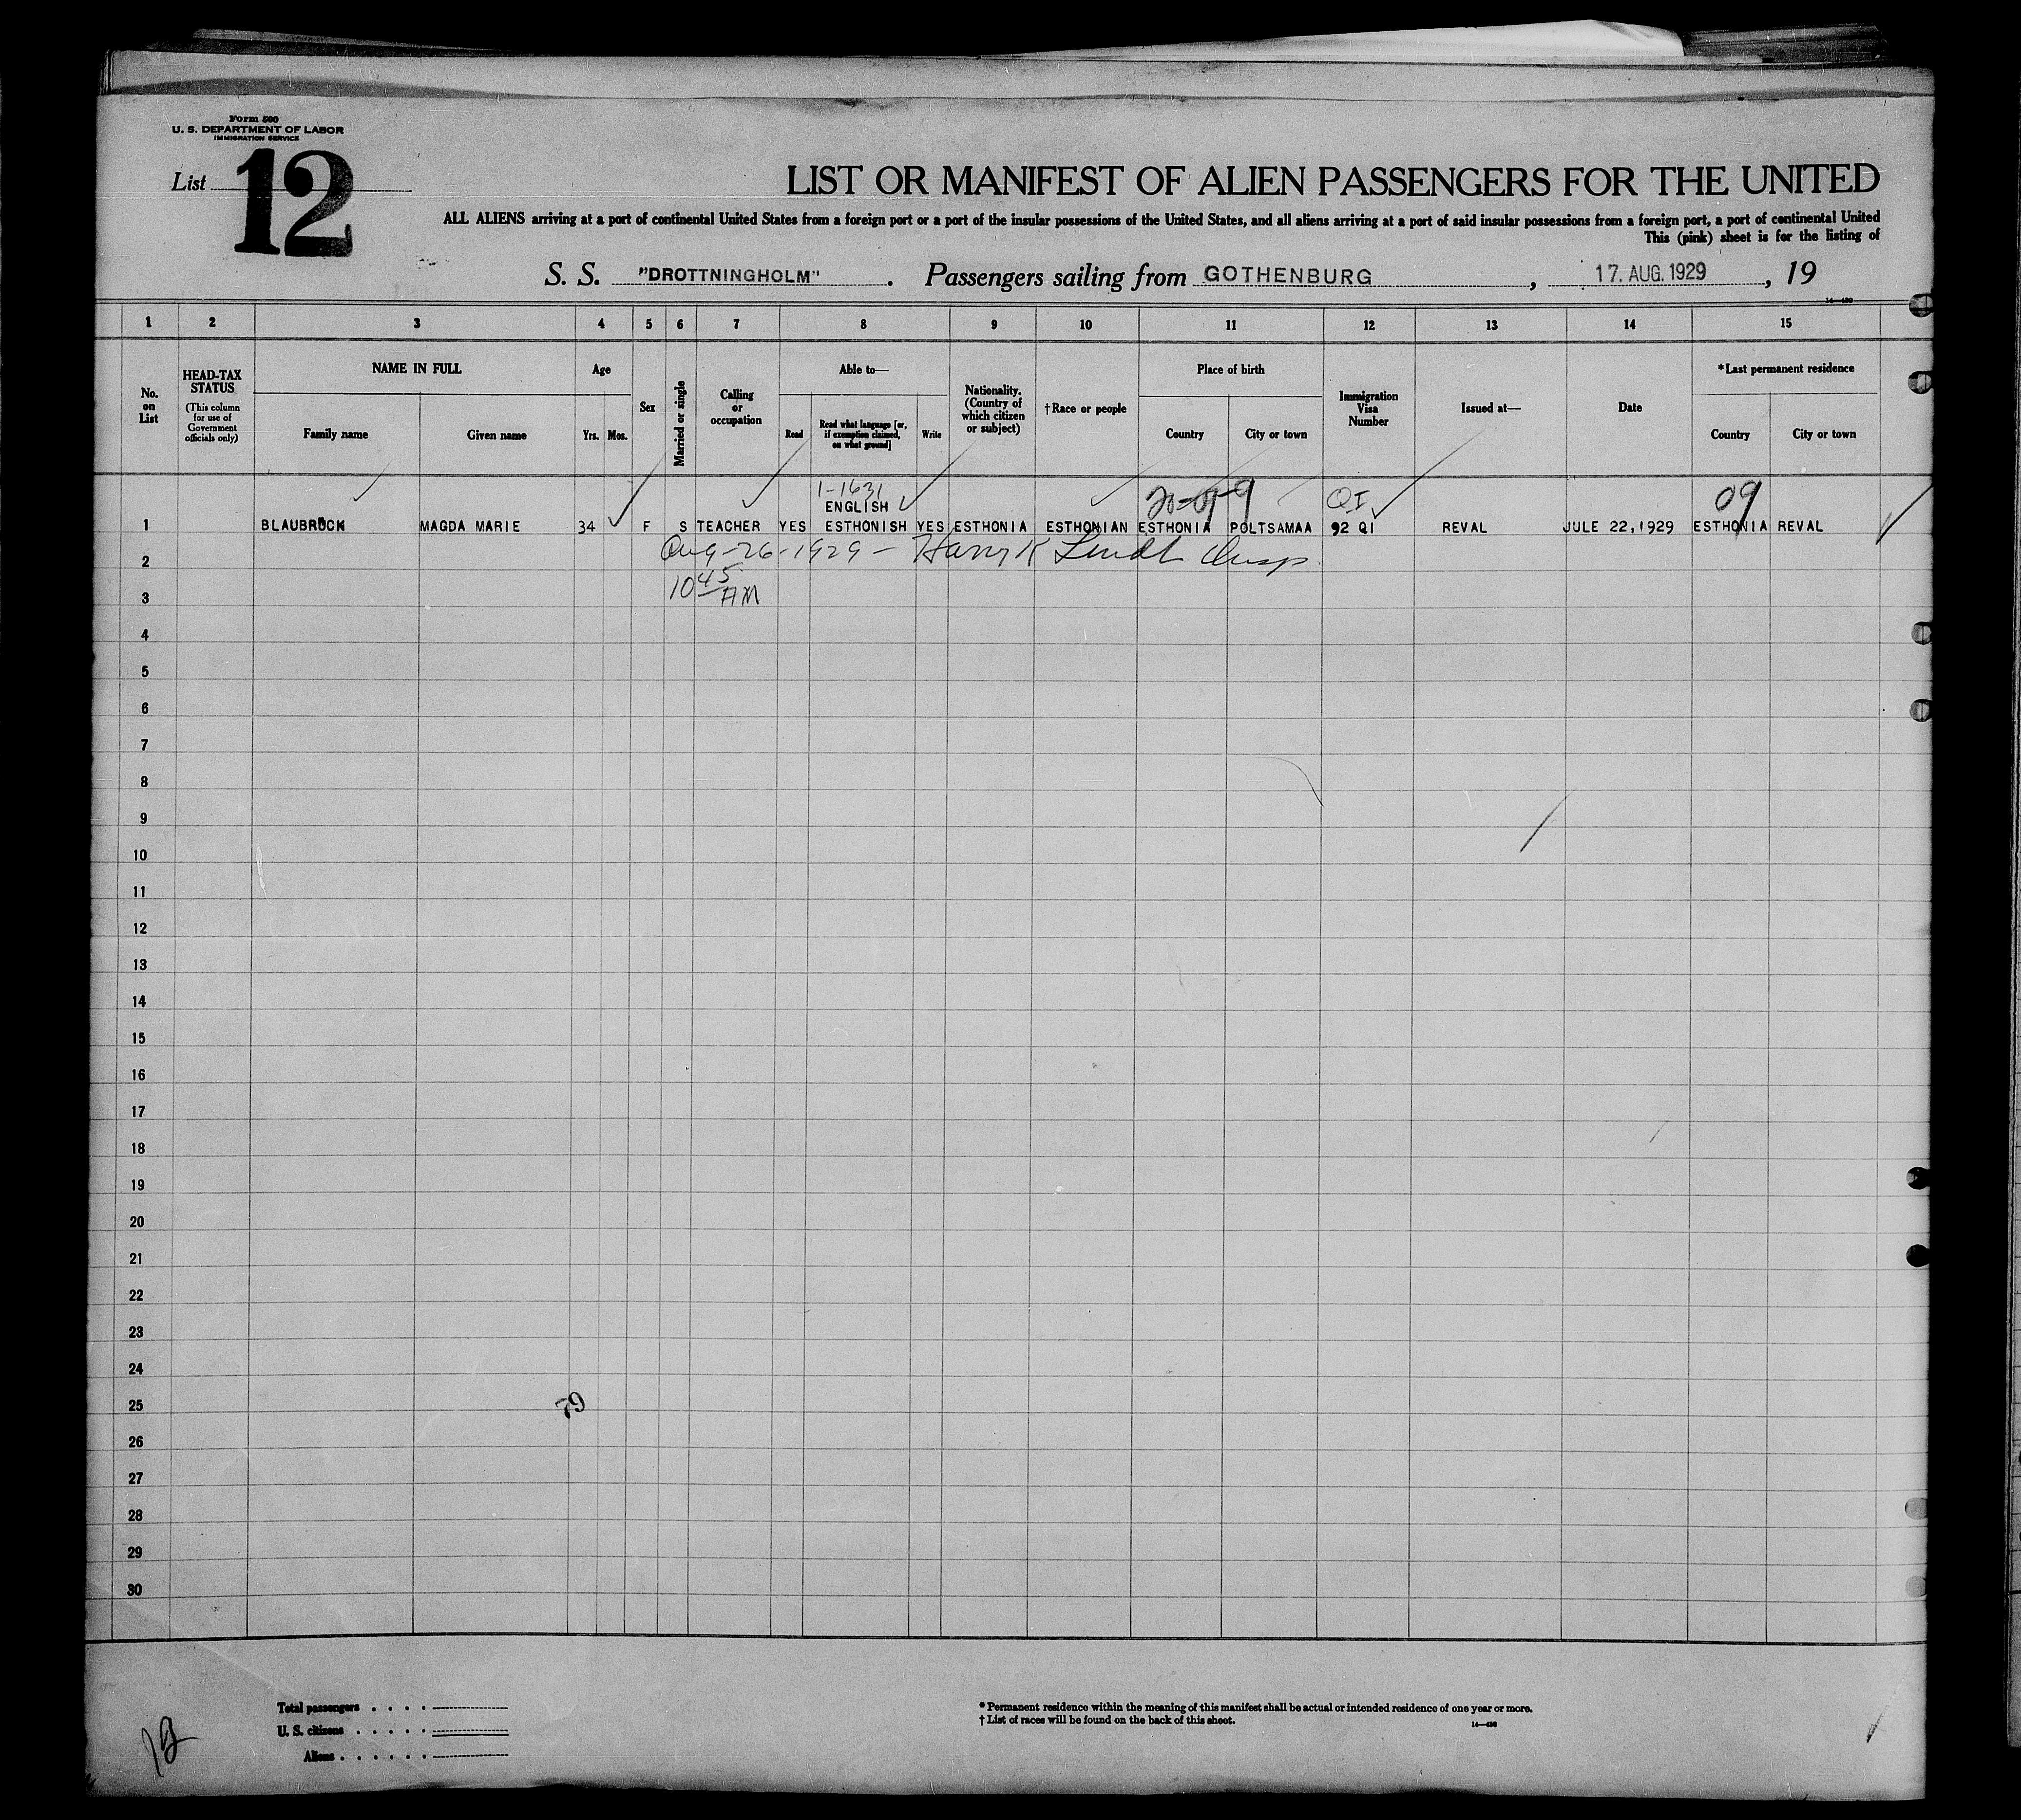 Form 500
U. S. DEPARTMENT OF LABOR
IMMIGRATION SERVICE
List 12
LIST OR MANIFEST OF ALIEN PASSENGERS FOR THE UNITED
ALL ALIENS arriving at a port of continental United States from a foreign port or a port of the insular possessions of the United States, and all aliens arriving at a port of said insular possessions from a foreign port, a port of continental United
This (pink) sheet is for the listing of
S. S. "DROTTNINGHOLM". Passengers sailing from GOTHENBURG, 17. AUG. 1929, 19
1 2 3 4 5 6 7 8 9 10 11 12 13 14 15
No. on List
HEAD-TAX STATUS
(This column for use of Government officials only)
NAME IN FULL
Family name Given name
Age
Yrs. Mos.
Sex
Married or single
Calling or occupation
Able to—
Read
Read what language [or, if exemption claimed, on what ground]
Write
Nationality. (Country of which citizen or subject)
† Race or people
Place of birth
Country City or town
Immigration Visa Number
Issued at—
Date
* Last permanent residence
Country City or town
1-1631 QI 09
ENGLISH
1 BLAUBRÜCK MAGDA MARIE 34 F S TEACHER YES ESTHONISH YES ESTHONIA ESTHONIAN ESTHONIA POLTSAMAA 92 QI REVAL JULE 22,1929 ESTHONIA REVAL
2 Aug-26-1929 - Harry K
3 10 45 AM
4
5
6
7
8
9
10
11
12
13
14
15
16
17
18
19
20
21
22
23
24
25
79
26
27
28
29
30
Total passengers
U. S. citizens
Aliens
* Permanent residence within the meaning of this manifest shall be actual or intended residence of one year or more.
† List of races will be found on the back of this sheet.
12